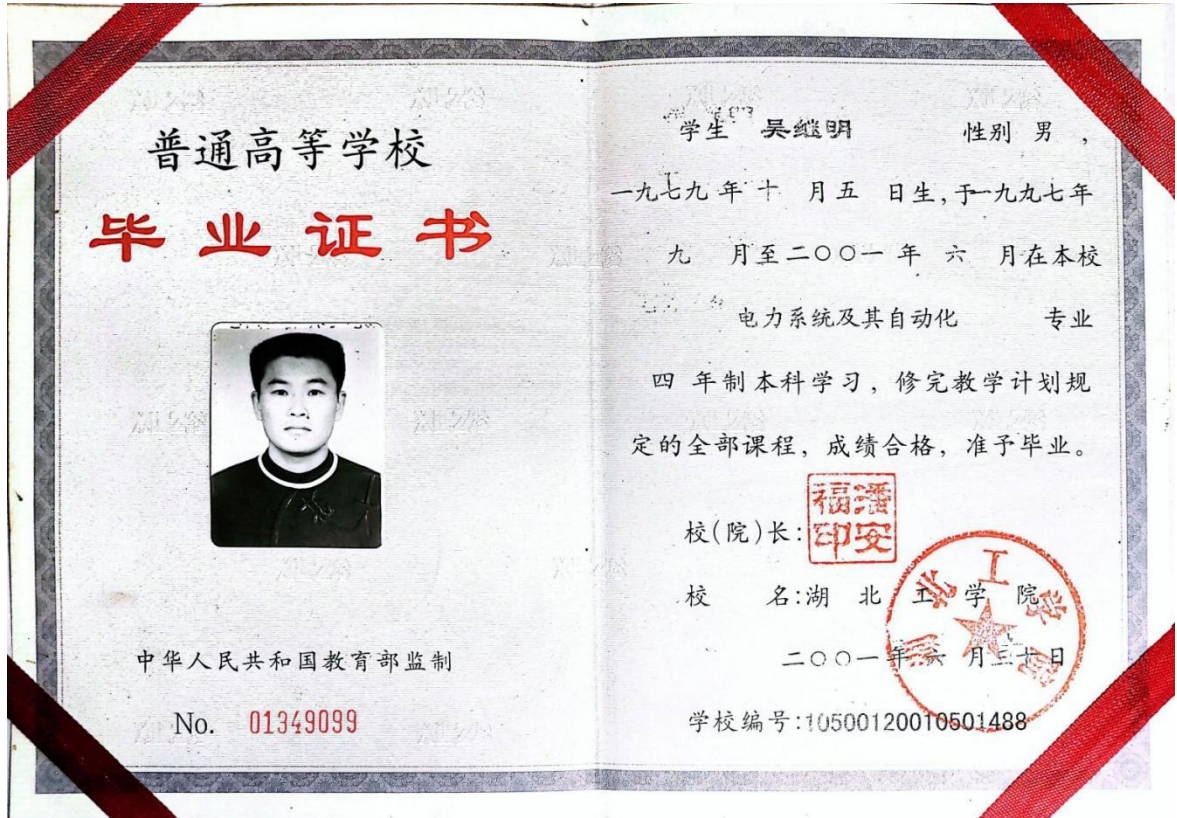 普通高等学校
毕业证书
中华人民共和国教育部监制
No. 01349099
学生 吴继明 性别 男 ，
一九七九年 十 月五 日生，于一九九七年
九 月至二〇〇一年 六 月在本校
电力系统及其自动化 专业
四 年制本科学习，修完教学计划规
定的全部课程，成绩合格，准予毕业。
校(院)长：
潘安福印
校 名：湖 北 工 学 院
湖北工学院
二〇〇一年六 月三十日
学校编号：10500120010501488